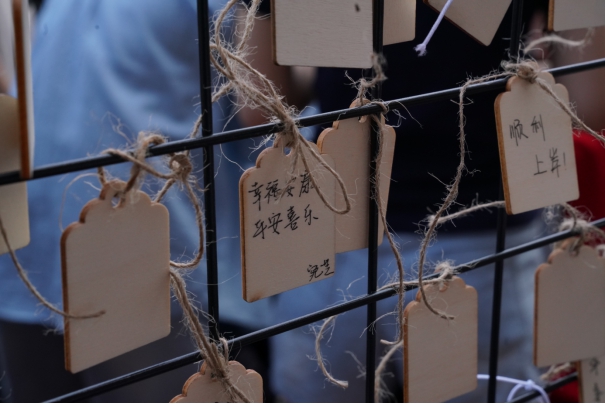 幸福安康
平安喜乐
顺利
上岸！